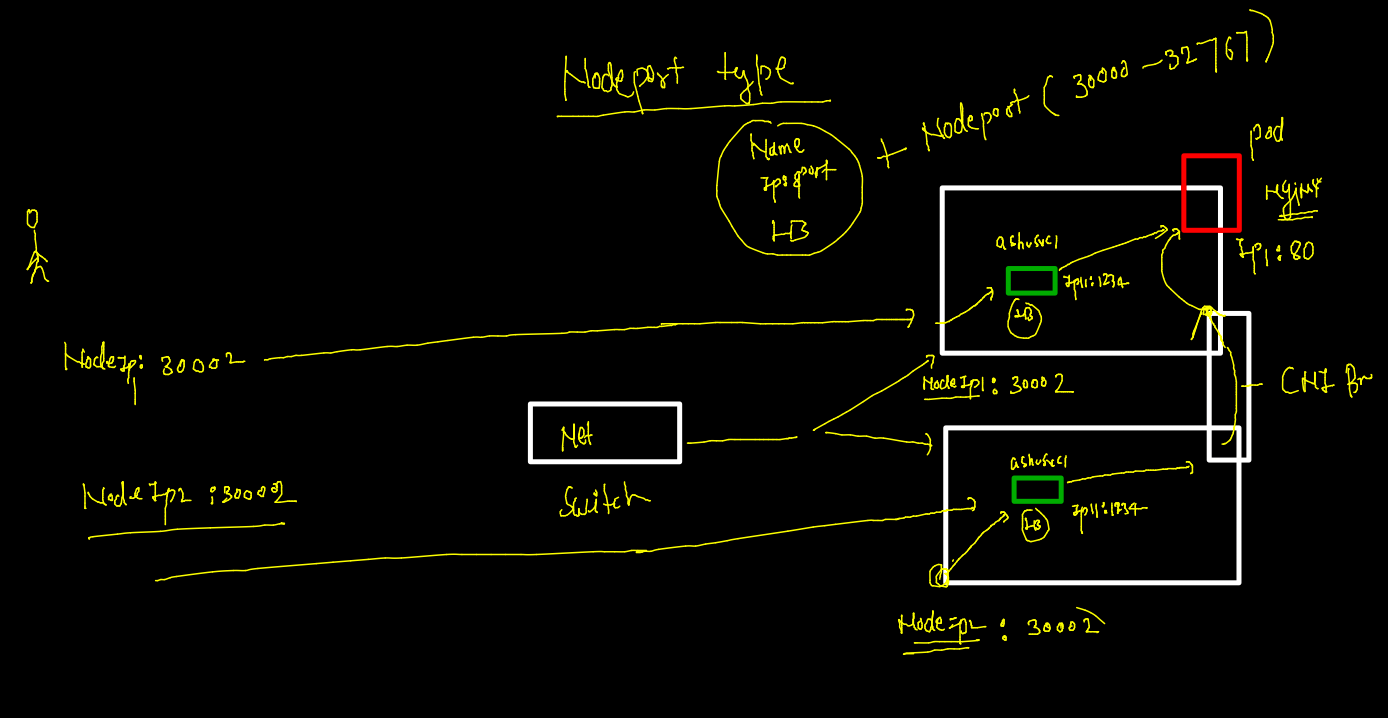 Nodeport type
+ Nodeport (30000 - 32767)
Name
Ip&port
LB
pod
Nginx
Ip1:80
ashusvc1
Ip11:1234
LB
NodeIp: 30002
NodeIp1: 30002
CNI Br
Net
Switch
NodeIp2 :30002
ashusvc1
Ip11:1234
LB
NodeIp2 : 30002